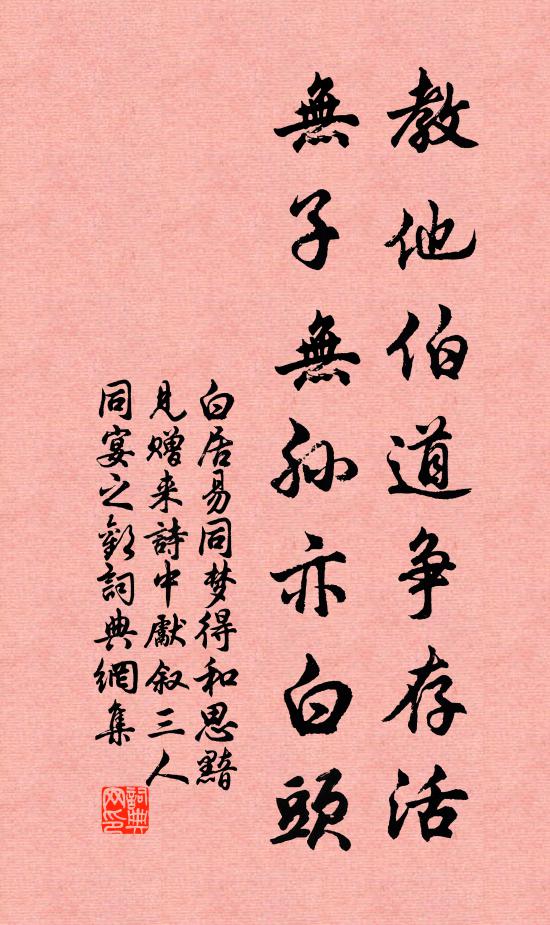 教他伯道争存活
無子無孫亦白頭
白居易同梦得和思黯
见赠来詩中獻叙三人
同宴之歡詞典網集
詞典网印